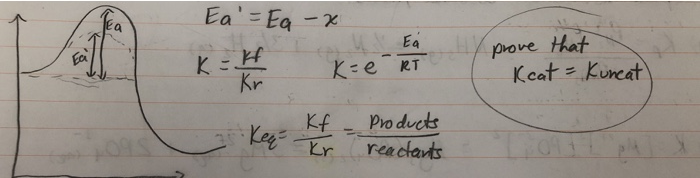 Ea' = Ea - x
Ea
Ea'
K = Kf/Kr
K = e^-Ea/RT
prove that
Kcat = Kuncat
Keq = Kf/Kr = Products/reactants